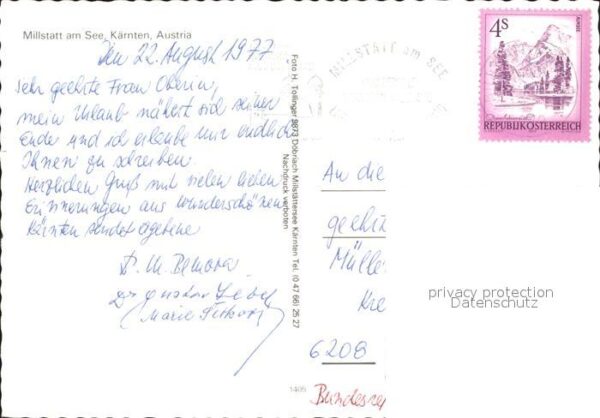 Millstatt am See, Kärnten, Austria
Den 22. August 1977
Sehr geehrte Frau Oberin,
mein Urlaub nähert sich seinem
Ende und ich erlaube mir endlich
Ihnen zu schreiben.
Herzlichen Gruß mit vielen lieben
Erinnerungen aus wunderschönen
Kärnten sendet ergebene
Dr. gustav
Marie
Foto H. Tollinger 9873 Döbriach Millstättersee Kärnten Tel. (0 47 66) 25 27
Nachdruck verboten
1405
MILLSTATT AM SEE
4s
ALMSEE
REPUBLIK ÖSTERREICH
An die
geehrt
Müller
Kre
6208
Bundesrep
privacy protection
Datenschutz